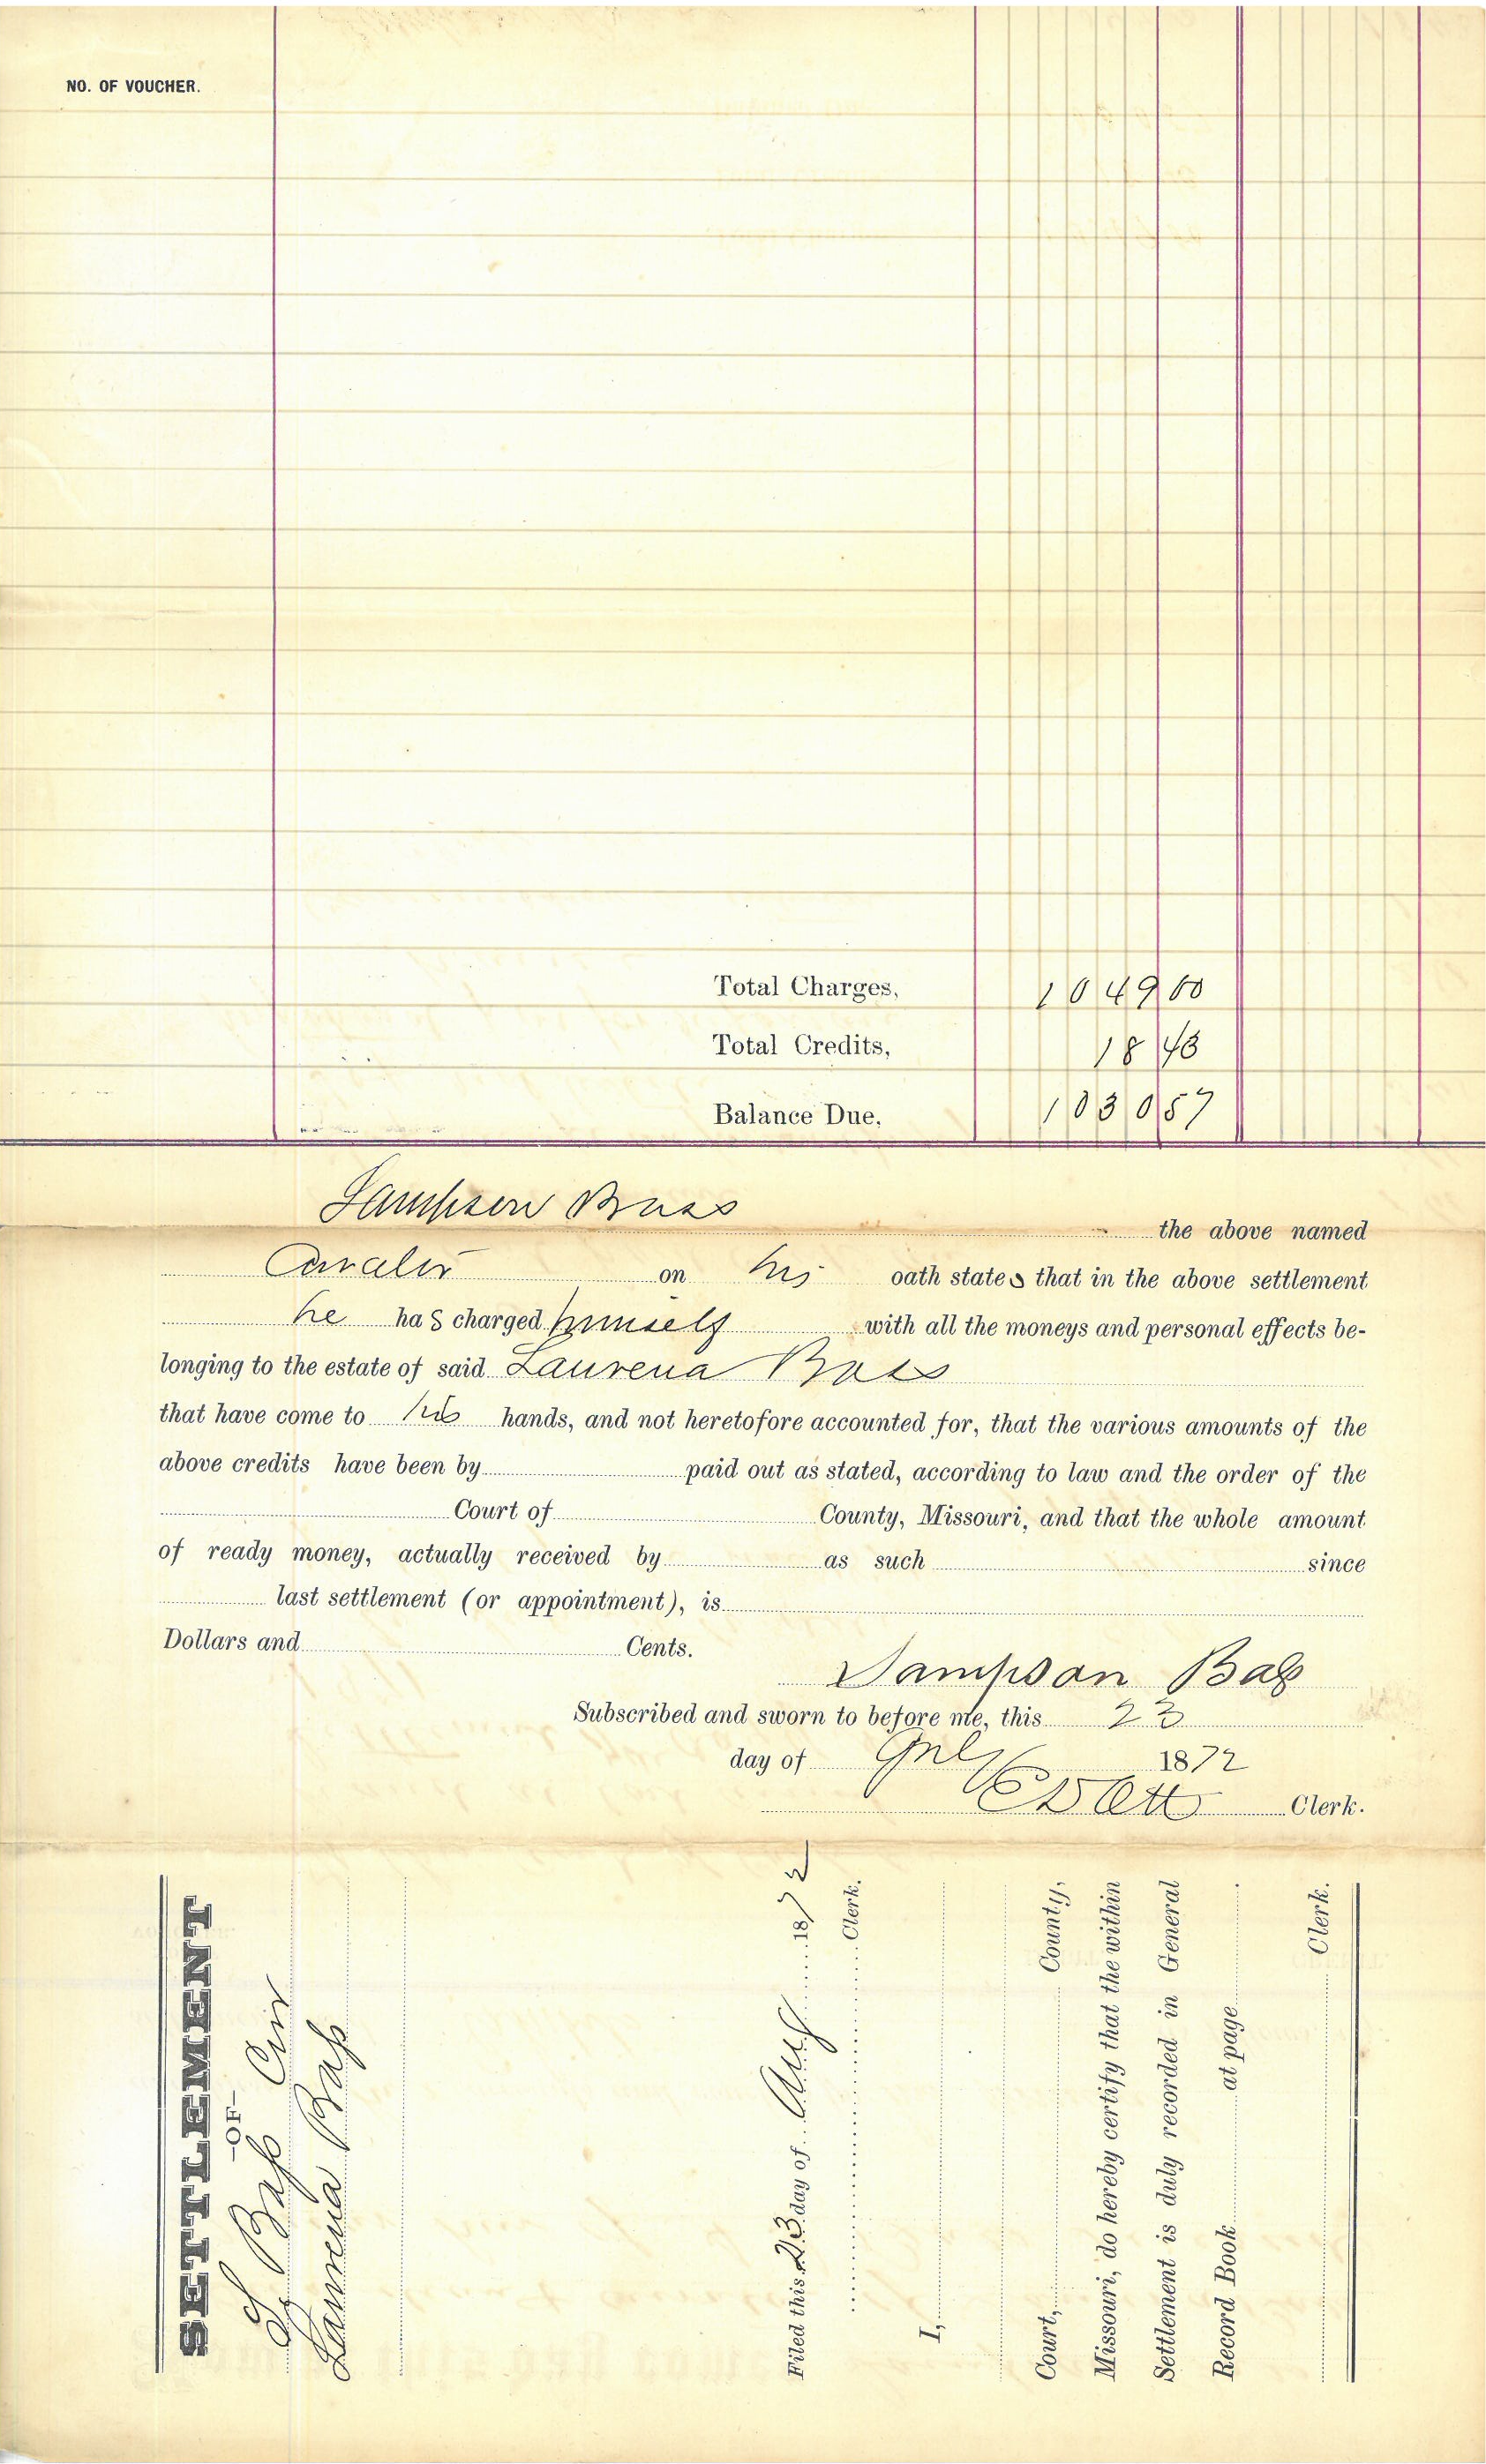 NO. OF VOUCHER.
Total Charges, 1049 00
Total Credits, 18 43
Balance Due, 1030 57
Sampson Bass the above named
Curator on his oath states that in the above settlement
he has charged himself with all the moneys and personal effects be-
longing to the estate of said Laurena Bass
that have come to his hands, and not heretofore accounted for, that the various amounts of the
above credits have been by paid out as stated, according to law and the order of the
Court of County, Missouri, and that the whole amount
of ready money, actually received by as such since
last settlement (or appointment), is
Dollars and Cents.
Sampson Bass
Subscribed and sworn to before me, this 23
day of 1872
Clerk.
SETTLEMENT
—OF—
S Bass Cur
Laurena Bass
Filed this 23 day of Aug 1872
Clerk.
I,
Court, County,
Missouri, do hereby certify that the within
Settlement is duly recorded in General
Record Book at page .
Clerk.